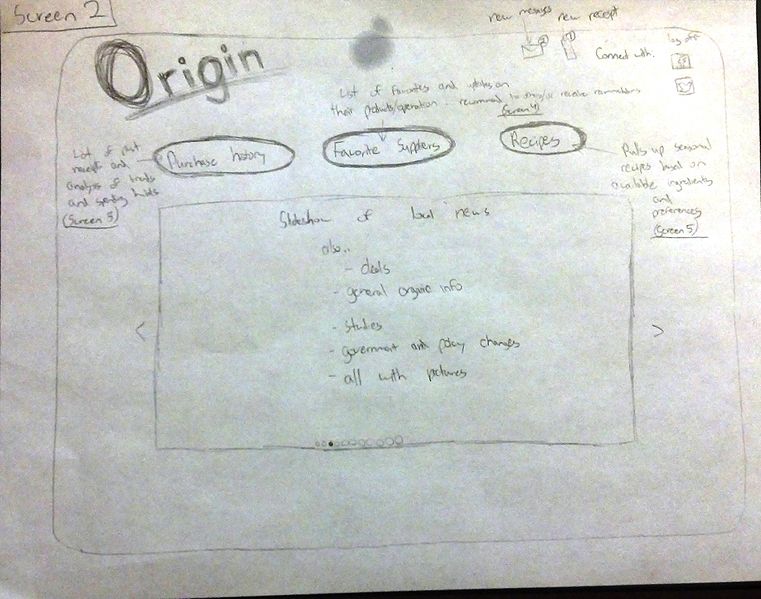 Screen 2
new messages
new receipt
log off
Origin
Connect with.
List of Favorites and updates on
their products/operation - recommend to others/or receive
(Screen 4)
List of past
receipts and
analysis of trends
and spending habits
(Screen 3)
Purchase history
Favorite Suppliers
Recipes
Pulls up seasonal
recipes based on
available ingredients
and
preferences
(Screen 5)
Slideshow of local news
also..
- deals
- general organic info
- studies
- government and policy changes
- all with pictures